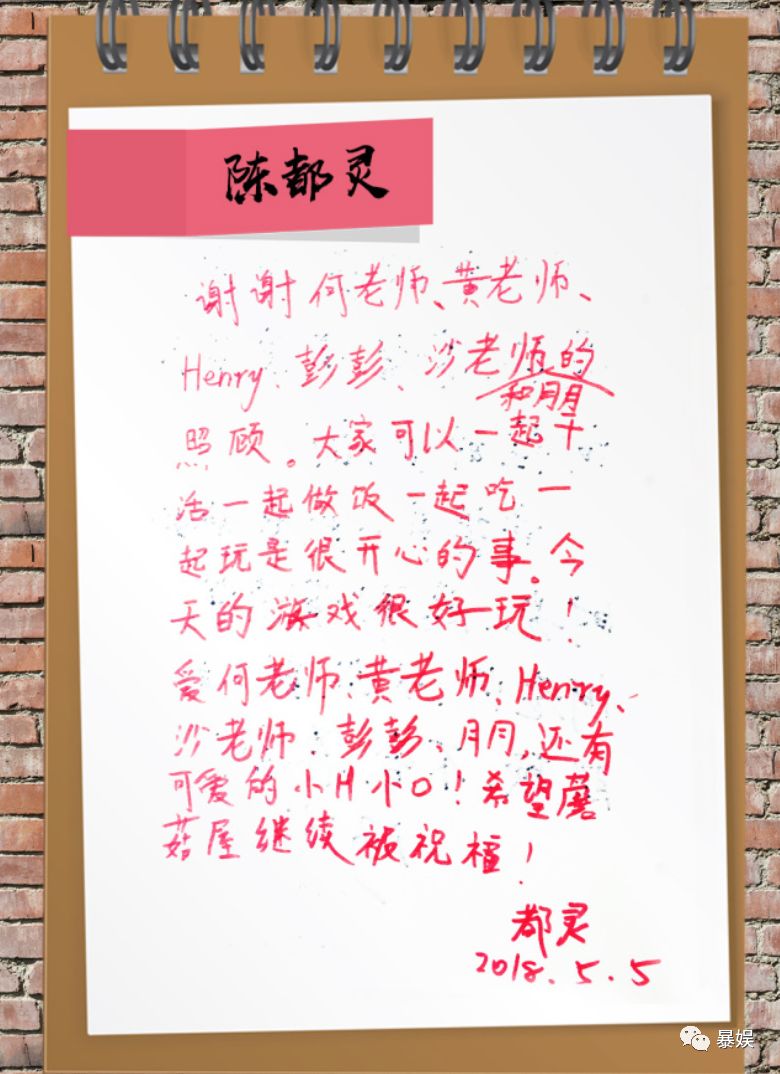 陈都灵
谢谢何老师、黄老师、
Henry、彭彭、沙老师的
和朋朋
照顾。大家可以一起干
活一起做饭一起吃一
起玩是很开心的事。今
天的游戏很好玩！
爱何老师、黄老师、Henry、
沙老师、彭彭、朋朋，还有
可爱的小H小O！希望蘑
菇屋继续被祝福！
都灵
2018.5.5
暴娱